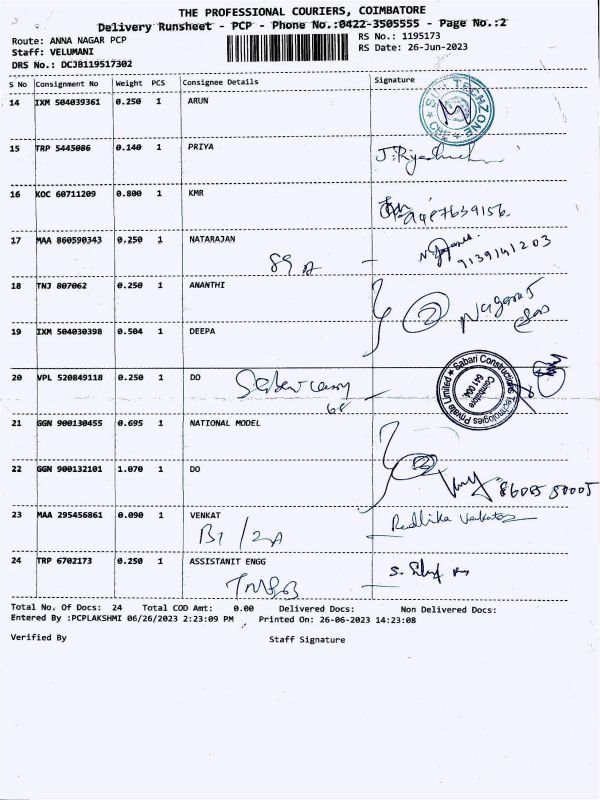 THE PROFESSIONAL COURIERS, COIMBATORE
Delivery Runsheet - PCP - Phone No.:0422-3505555 - Page No.:2
Route: ANNA NAGAR PCP RS No.: 1195173
Staff: VELUMANI RS Date: 26-Jun-2023
DRS No.: DCJB119517302
S No Consignment No Weight PCS Consignee Details Signature
14 IXM 504039361 0.250 1 ARUN
SUN TECHZONE
15 TRP 5445086 0.140 1 PRIYA
16 KOC 60711209 0.800 1 KMR
9487639156
17 MAA 860590343 0.250 1 NATARAJAN
89 A 9139141203
18 TNJ 807062 0.250 1 ANANTHI
19 IXM 504030398 0.504 1 DEEPA
20 VPL 520849118 0.250 1 DO
68
Sabari Constructions Technologies Private Limited
Coimbatore
641 004.
21 GGN 900130455 0.695 1 NATIONAL MODEL
22 GGN 900132101 1.070 1 DO
23 MAA 295456861 0.090 1 VENKAT
B1/2A Radhika Venkat
24 TRP 6702173 0.250 1 ASSISTANIT ENGG
Total No. Of Docs: 24 Total COD Amt: 0.00 Delivered Docs: Non Delivered Docs:
Entered By :PCPLAKSHMI 06/26/2023 2:23:09 PM Printed On: 26-06-2023 14:23:08
Verified By Staff Signature